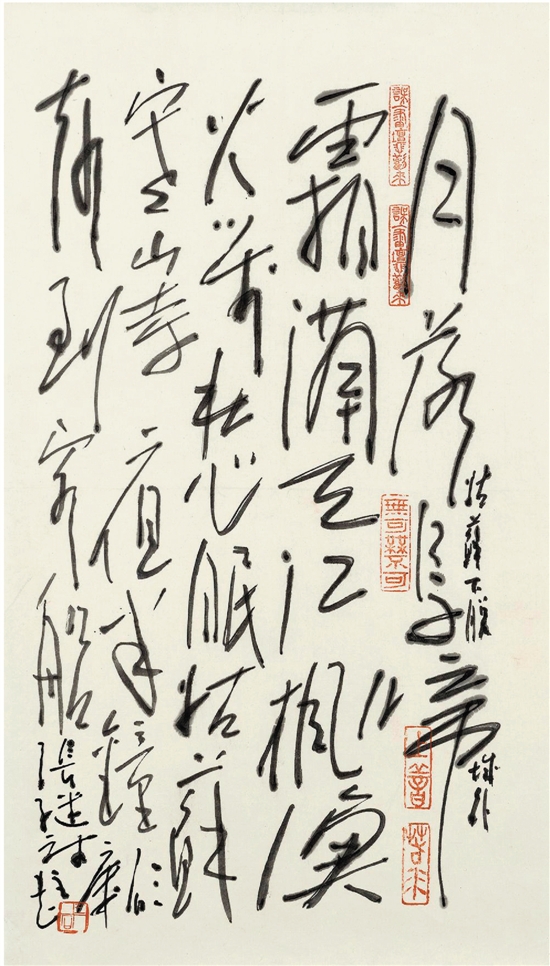 月落烏啼
姑蘇下脫
城外
霜滿天江楓漁
火對愁眠姑蘇
寒山寺夜半鐘
聲到客船
張繼詩